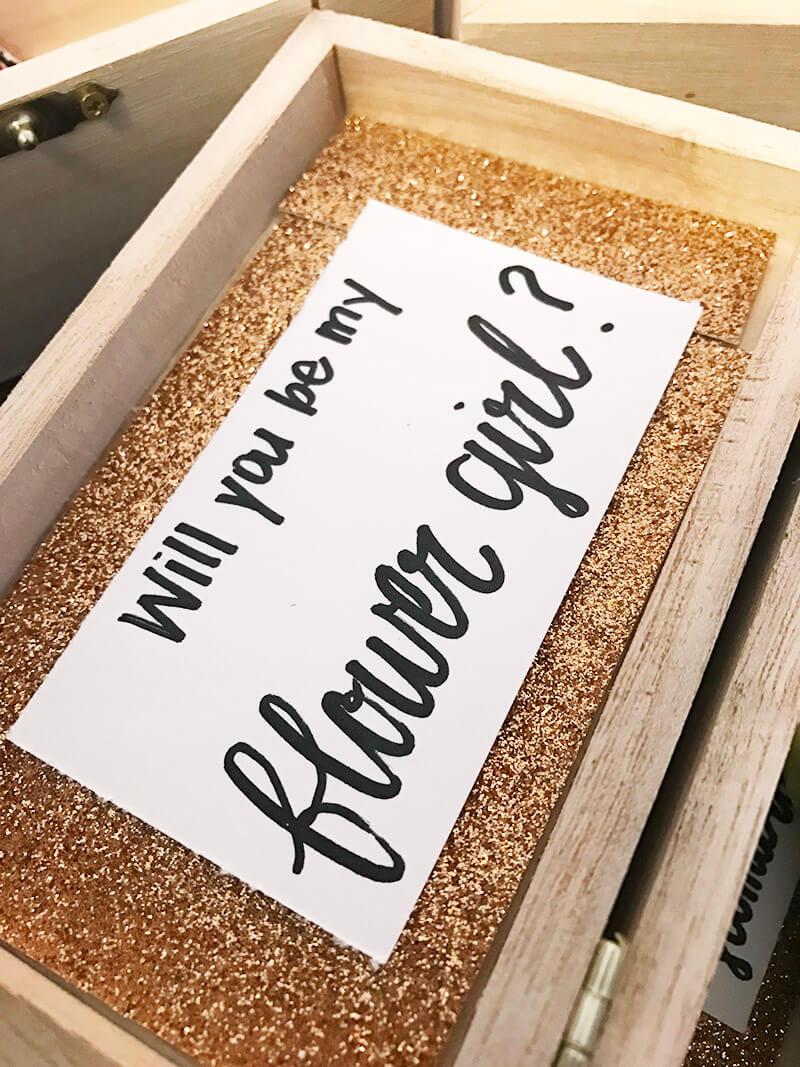 Will you be my
flower girl?